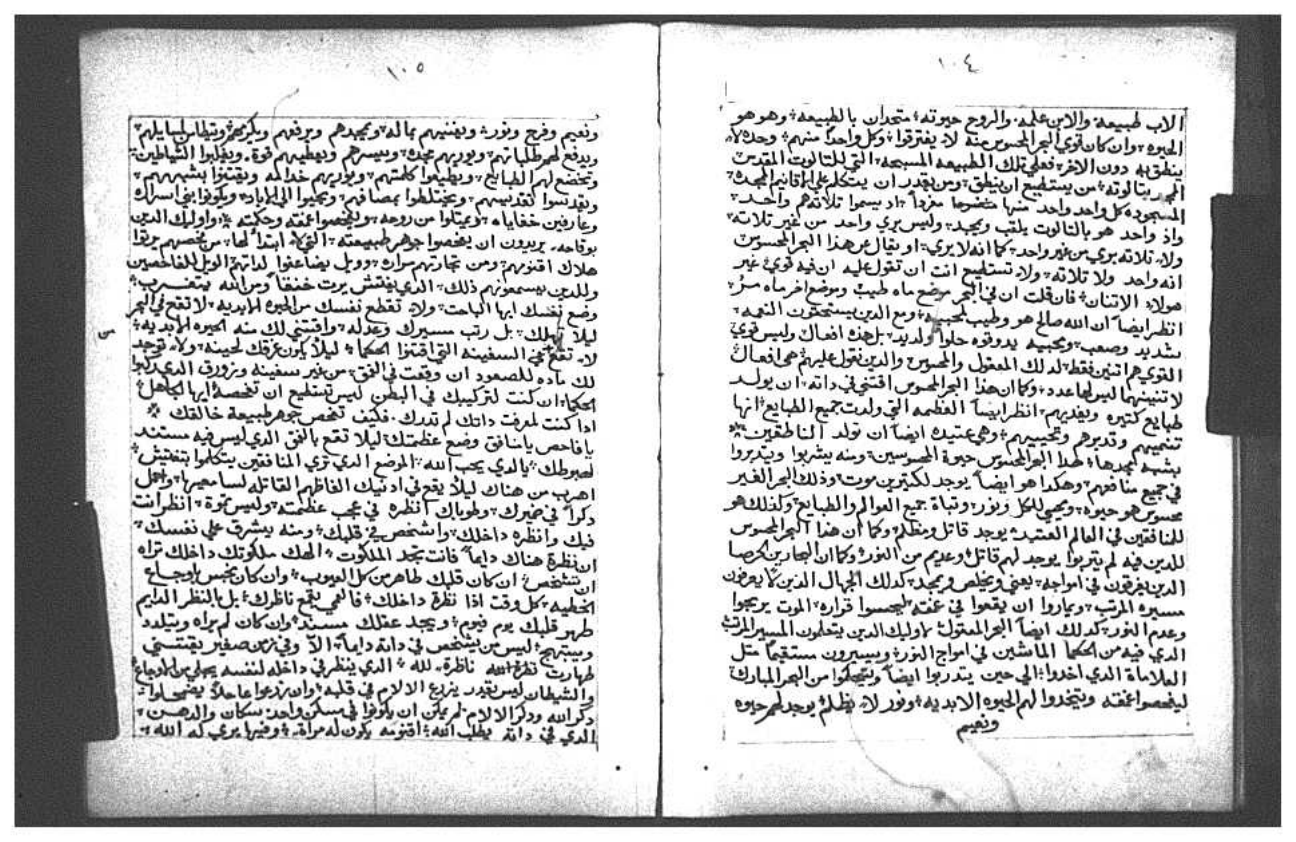 ١٠٤
الاب طبيعه والابن علمه والروح حيوته متحدان بالطبيعه وهو هو
الحيوه وان كان قوي البحر المحسوس منه لا يفترقوا وكل واحداً منهم وحده لا
ينطق به دون الاخر فعلي تلك الطبيعه المسبحه التي للتالوت المقدس
المجد بتالوته من يستطيع ان ينطق ومن يقدر ان يتكلم علي الاقانيم الممجده
المسجوده كل واحد واحد منها مفرداً اذ يسموا تلاتة هم واحد
واذ واحد هو بالتالوت يلقب ويمجد وليس يري واحد من غير تلاته
ولا تلاته يري من غير واحد كما انه لا يري او يقال عن هذا البحر المحسوس
انه واحد ولا تلاته ولا تستطيع انت ان تقول عليه ان فيه قوي غير
هولاء الاتنان فان قلت ان في البحر موضع ماه طيب وموضع اخر ماه مر
انظر ايضاً ان الله صالح هو وطيب لمحبيه ومع الدين يستحقون النقمه
شديد وصعب ومحبيه يدوقوه حلوا ولديد بل هذه افعال وليس قوي
القوي هم اتنين فقط لدلك المعقول والمحسوس والدين نقول عليهم هي افعال
لا تنيينهما ليس لها عدد وكما ان هذا البحر المحسوس اقتني في داته ان يولد
طبايع كتيره ويغديهم انظر ايضاً العظمه التي ولدت جميع الطبايع انها
تنميهم وتدبرهم وتحييهم وهي عتيده ايضاً ان تولد الناطقين
بشبه مجدها لهدا البحر المحسوس حيوة المحسوسين ومنه يشربوا ويتدبروا
في جميع منافعهم وهكدا هو ايضاً يوجد لكتيرين موت وذلك البحر الغير
محسوس هو حيوه ويحيي للكل ونور وتبات جميع العوالم والطبايع وكذلك هو
للنافقين في العالم العتيد يوجد قاتل ومظلم وكما ان هدا البحر المحسوس
للدين فيه لم يتربوا يوجد لهم قاتل وعديم من النور وكما ان البحارين الحرصا
الدين يغرقون في امواجه يعني ويخلص ويمجد كدلك الجهال الدين لا يعرفون
مسيره المرتب ويماروا ان يقعوا في عمقه ليحسوا قراره الموت يرجوا
وعدم النور كدلك ايضاً البحر المعقول لاوليك الدين يتعلمون المسير المرتب
الدي فيه من الحكما الماشين في امواج النور ويسيرون مستقيماً متل
العلاماة الدي اخدوا الي حين يتدربوا ايضاً ويتحكموا من البحر المبارك
ليفحصوا عمقه ويتخدوا لهم الحيوه الابديه ونور لا يظلم يوجد لهم حيوه
ونعيم
١٠٥
ونعيم وفرح ونور ويغنيهم بماله ويمجدهم ويرفعهم ويكرمهم
ويدفع لهم طلباتهم ويوريهم مجده وييسرهم ويعطيهم قوة ويغلبوا الشياطين
وتخضع لهم الطبايع ويطيعوا كلمتهم ويوريهم خدامه ويقتنوا بشبههم
ويقدسوا كقدسهم ويختلطوا بمصافهم ويحيوا الي الاباد ويكونوا بني اسراره
وعارفين خفاياه ويمتلوا من روحه ويفحصوا عمقه وحكمته واوليك الدين
بوقاحه يريدون ان يفحصوا جوهر طبيعته التي لا ابتدا لها من فحصهم يرتوا
هلاك اقنومهم ومن تجارتهم مراره وويل يضاعفوا لداتهم الويل للفاحصين
وللدين يسمعونهم ذلك الدي يفتش يرت خنقاً ومن الله يتغرب
وضع نفسك ايها الباحت ولا تقطع نفسك من الحيوه الابديه لا تقع في البحر
ليلا تهلك بل رتب مسيرك وعدله واقتني لك منه الحيوه الابديه
لا تقع في السفينه التي اقتنوا الحكما ليلا يكون غرقك لحينه ولا توجد
لك ماده للصعود ان وقعت في العمق من غير سفينه وزورق الدي دبروا
الحكما ان كنت لتركيبك في البطن ليس تستطيع ان تفحصه ايها الجاهل
ادا كنت لمعرفت داتك لم تدرك فكيف تفحص جوهر طبيعة خالقك
يا فاحص يا منافق وضع عظمتك ليلا تقع بالعمق الدي ليس فيه مستند
لهبوطك يا لدي يحب الله الموضع الدي تري المنافقين يتكلموا بتفتيش
اهرب من هناك ليلا يقع في ادنيك الفاظهم القاتله لسامعيها واجعل
دكراً في ضميرك وطوباك انظره في عجب عظمته وليس بقوة انظر انت
فيك وانظره داخلك واشخص في قلبك ومنه يشرق علي نفسك
ان نظرة هناك دايماً فانت تجد الملكوت الهك ملكوتك داخلك تراه
ان تشخص ان كان قلبك طاهر من كل العيوب وان كان نجس باوجاع
الخطيه كل وقت اذا نظرة داخلك فالعمي يقع ناظرك بل بالنظر الدايم
طهر قلبك يوم فيوم ويجد عقلك مسند وان كان لم يراه ويتلدد
ويبتهج ليس من يشخص في داته دايماً الا وفي زمن صغير يقتني
طهارت نظره ناظرة لله الدي ينظر في داخله لنفسه يجلي من الاوجاع
والشيطان ليس يقدر يزرع الالام في قلبه وان زرعوا عاجلاً يضمحلوا
دكر الله ودكر الالام لم يمكن ان يكونوا في مسكن واحد سكان والدهن
الدي في داته يطلب الله اقنومه يكون له مراة وفيها يري له الله